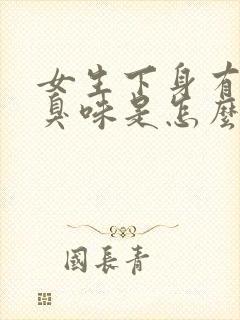 女生下身有
臭味是怎麼
國長青